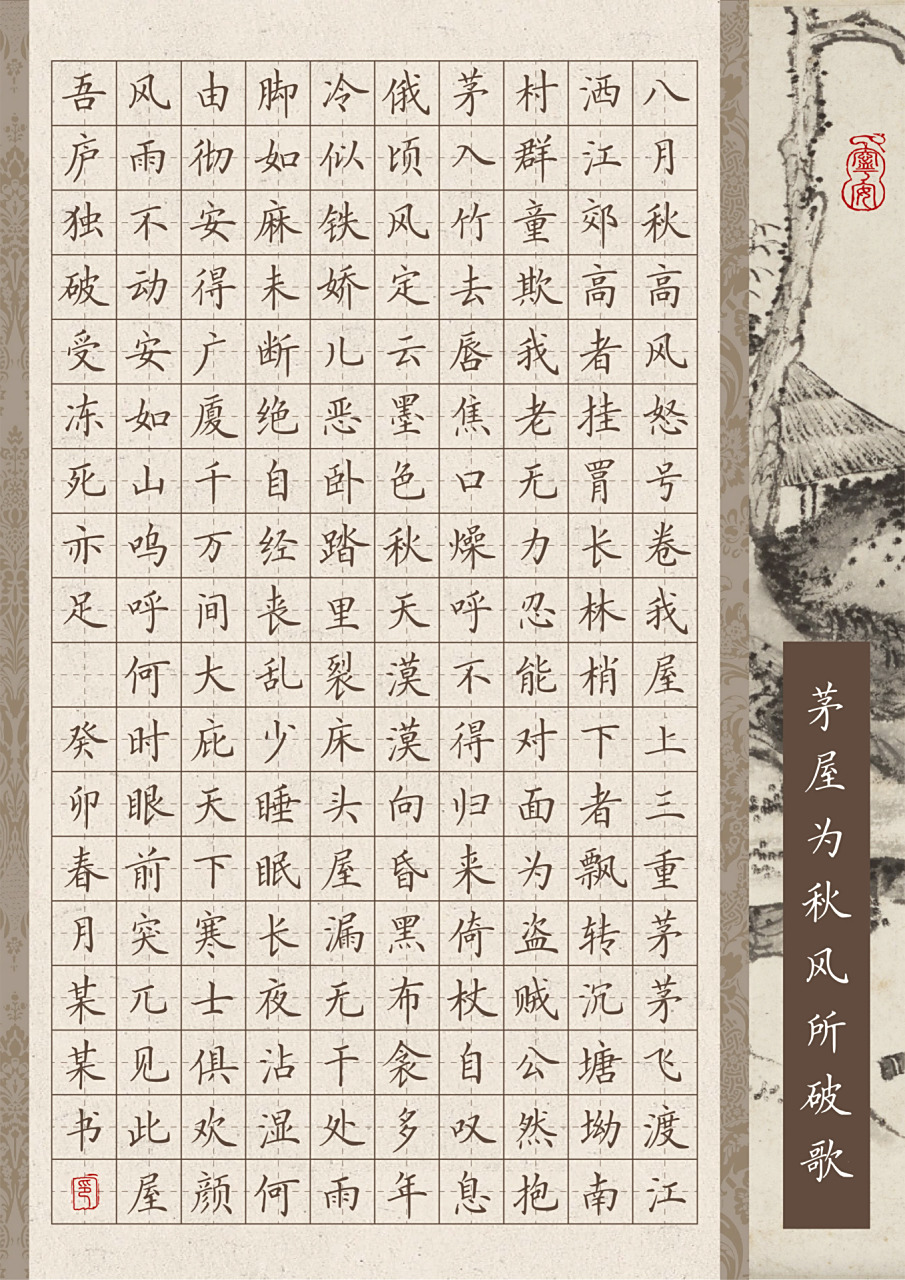 茅屋为秋风所破歌
八月秋高风怒号卷我屋上三重茅茅飞渡江
洒江郊高者挂罥长林梢下者飘转沉塘坳南
村群童欺我老无力忍能对面为盗贼公然抱
茅入竹去唇焦口燥呼不得归来倚杖自叹息
俄顷风定云墨色秋天漠漠向昏黑布衾多年
冷似铁娇儿恶卧踏里裂床头屋漏无干处雨
脚如麻未断绝自经丧乱少睡眠长夜沾湿何
由彻安得广厦千万间大庇天下寒士俱欢颜
风雨不动安如山呜呼何时眼前突兀见此屋
吾庐独破受冻死亦足 癸卯春月某某书
印